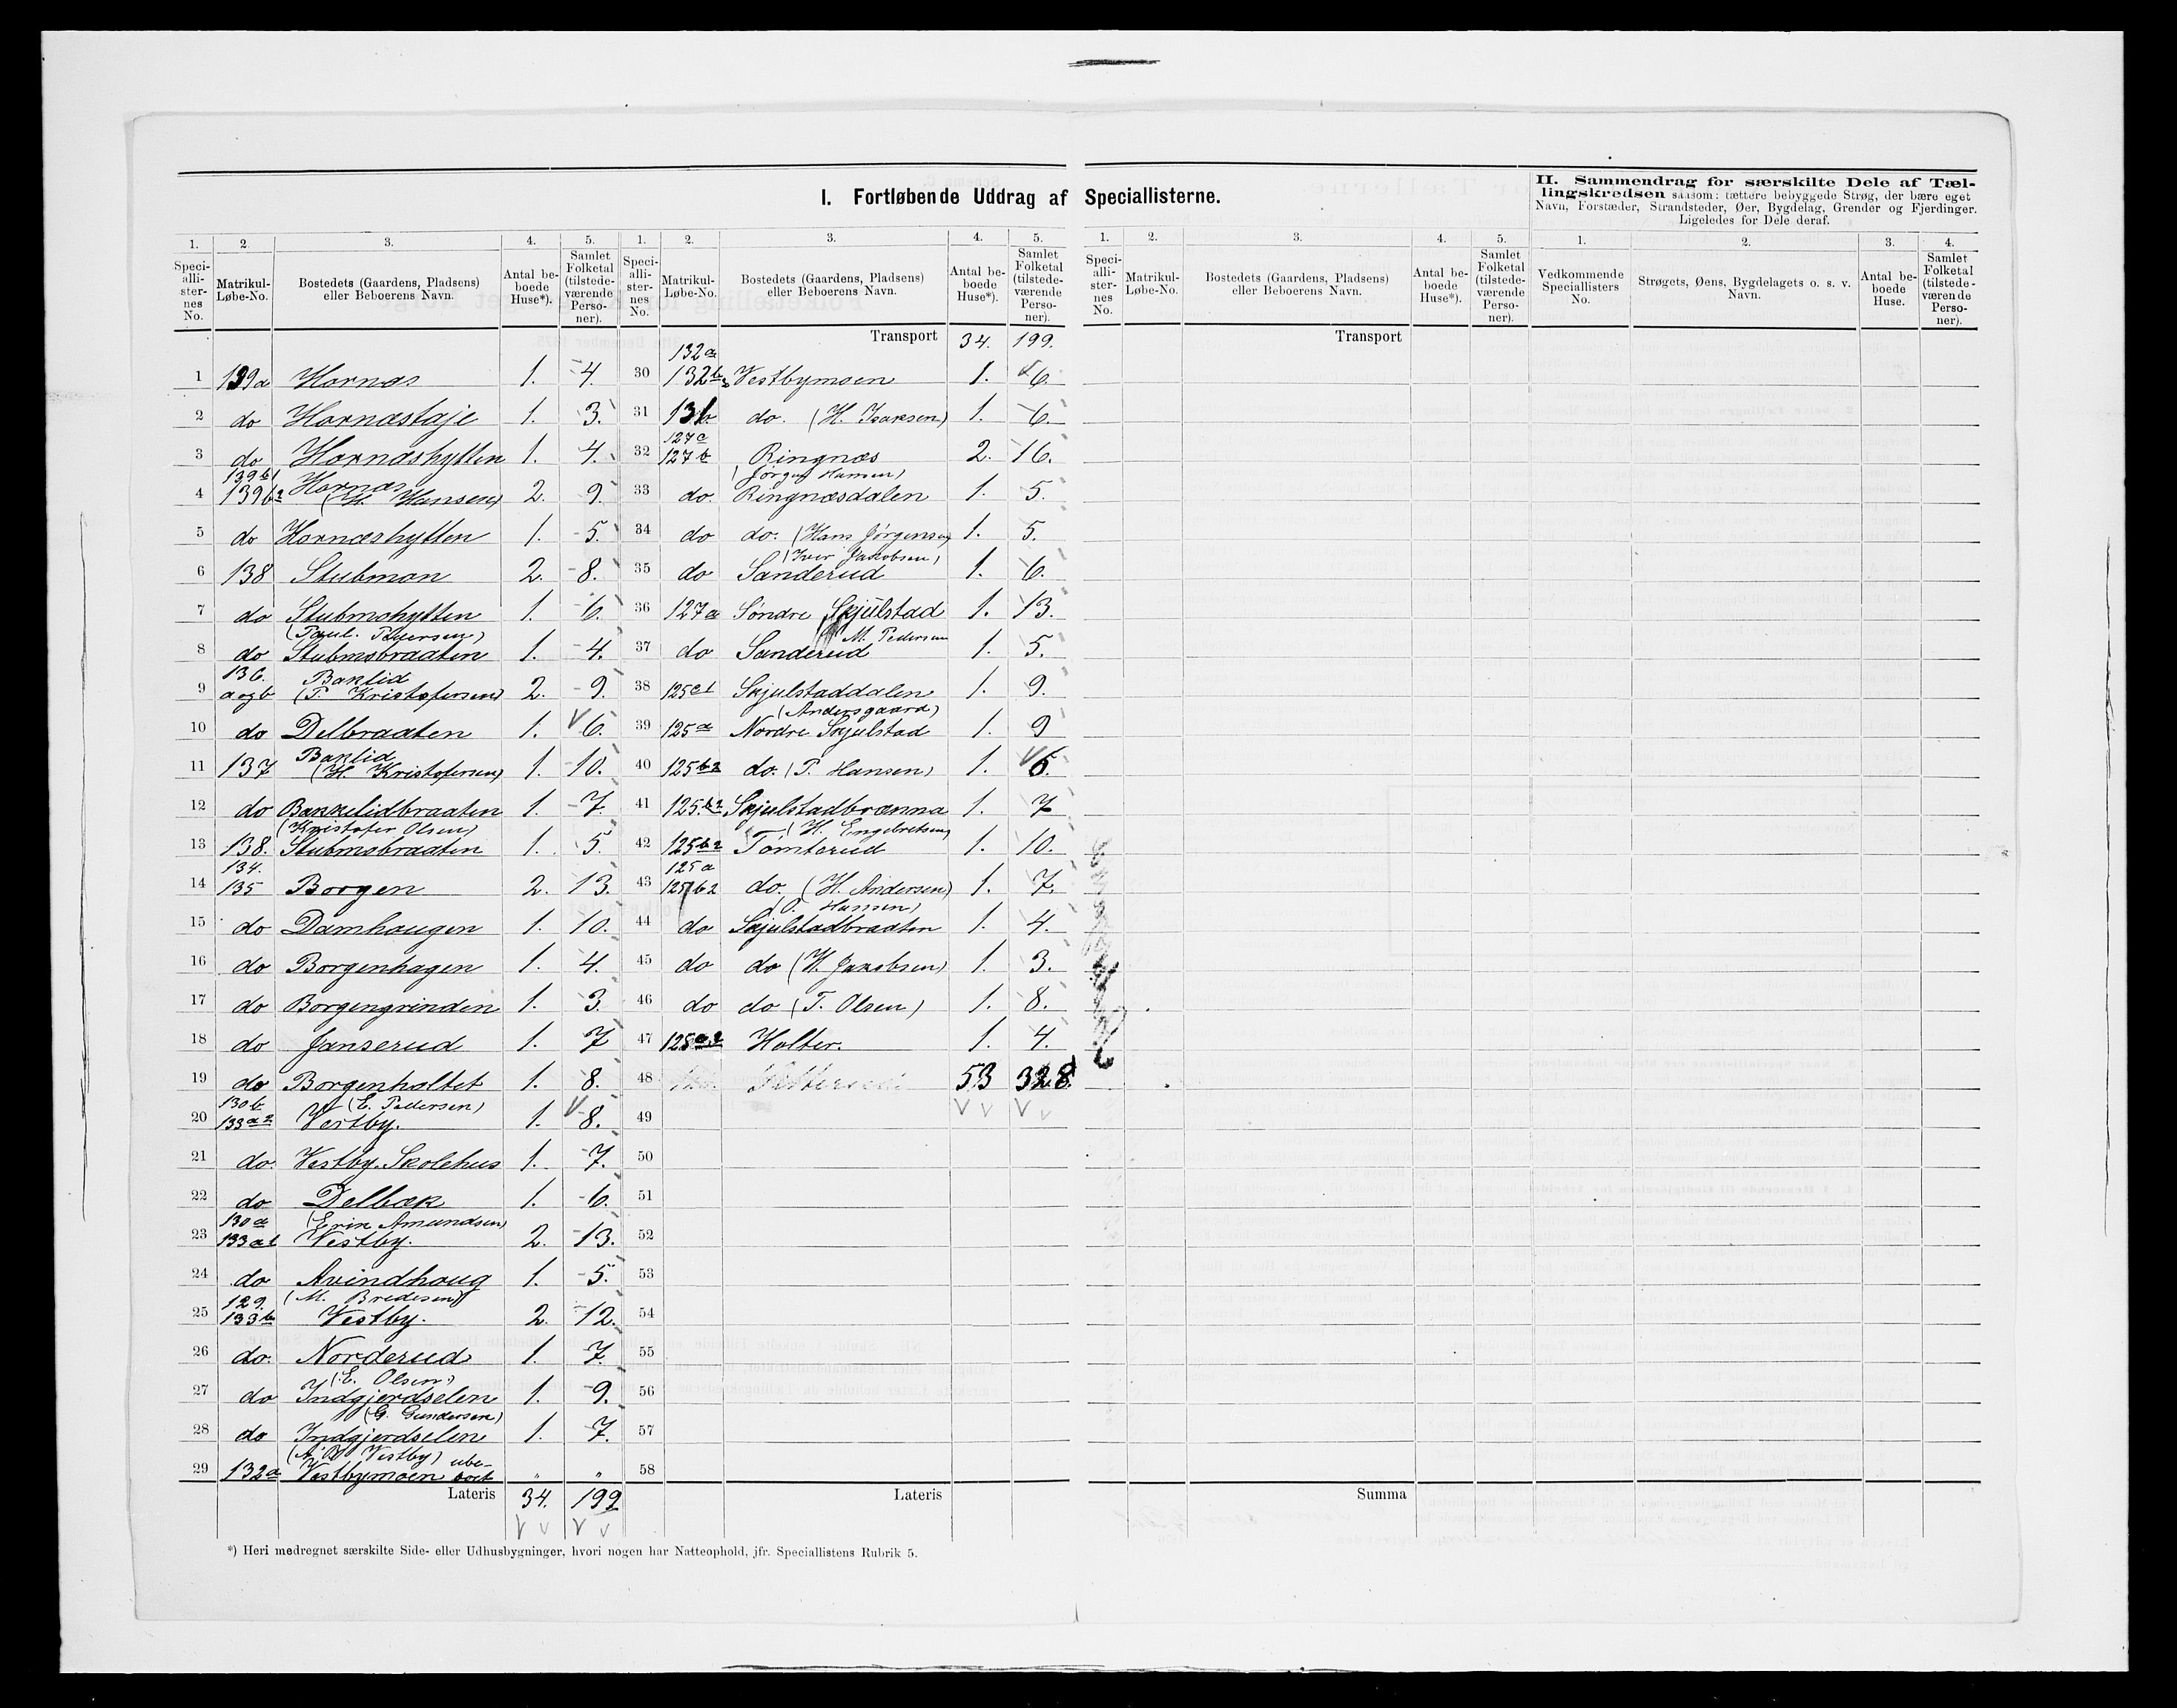 I. Fortløbende Uddrag af Speciallisterne.
II. Sammendrag for særskilte Dele af Tæl-
lingskredsen saasom: tættere bebyggede Strøg, der bære eget
Navn, Forstæder, Strandsteder, Øer, Bygdelag, Grender og Fjerdinger.
Ligeledes for Dele deraf.
1. 2. 3. 4. 5. 1. 2. 3. 4. 5. 1. 2. 3. 4. 5. 1. 2. 3. 4.
Speci-alli-ster-nes No. Matrikul-Løbe-No. Bostedets (Gaardens, Pladsens) eller Beboerens Navn. Antal be-boede Huse*). Samlet Folketal (tilstede-værende Perso-ner).
Speci-alli-ster-nes No. Matrikul-Løbe-No. Bostedets (Gaardens, Pladsens) eller Beboerens Navn. Antal be-boede Huse*). Samlet Folketal (tilstede-værende Perso-ner).
Speci-alli-ster-nes No. Matrikul-Løbe-No. Bostedets (Gaardens, Pladsens) eller Beboerens Navn. Antal be-boede Huse*). Samlet Folketal (tilstede-værende Perso-ner).
Vedkommende Speciallisters No. Strøgets, Øens, Bygdelagets o. s. v. Navn. Antal be-boede Huse. Samlet Folketal (tilstede-værende Perso-ner).
1 139a Hornæs 1. 4.
2 do Hornæstaje 1. 3.
3 do Hornæshytten 1. 4.
4 139b1 139b2 Hornæs (H. Hansen) 2. 9.
5 do Hornæshytten 1. 5.
6 138 Stubmon 2. 8.
7 do Stubmohytten 1. 6.
8 do (Paul. Pedersen) Stubmobraaten 1. 4.
9 136. a og b Baklid (P. Kristofersen) 2. 9.
10 do Delbraaten 1. 6.
11 137 Baklid (H. Kristofersen) 1. 10.
12 do Bakkelidbraaten 1. 7.
13 138. (Kristofer Olsen) Stubmobraaten 1. 5.
14 134. 135 Borgen 2. 13.
15 do Damhaugen 1. 10.
16 do Borgenhagen 1. 4.
17 do Borgengrinden 1. 3.
18 do Janserud 1. 7
19 do Borgenholtet 1. 8.
20 130b 133a2 (E. Pedersen) Vestby. 1. 8.
21 do. Vestby. Skolehus 1. 7.
22 do Delbæk 1. 6.
23 130a 133a1 (Erik Amundsen) Vestby. 2. 13.
24 do Avindhoug 1. 5.
25 129. 133b (M. Bredesen) Vestby. 2. 12.
26 do. Norderud 1. 7.
27 do (E. Olsen) Indgjerdselen 1. 9.
28 do (G. Gundersen) Indgjerdselen 1. 7.
29 132a (A. B. Vestby) Vestbymoen ube-boet " "
Lateris 34. 199
Transport 34. 199.
30 132a 132b Vestbymoen 1. 6.
31 131. do. (H. Isaksen) 1. 6.
32 127c 127b Ringnæs 2. 16.
33 do. (Jørgen Hansen) Ringnæsdalen 1. 5.
34 do do. (Hans Jørgensen) 1. 5.
35 do (Iver Jakobsen) Sanderud 1. 6.
36 127a Søndre Skjulstad 1. 13.
37 do M. Pedersen Sanderud 1. 5.
38 125a1 Skjulstaddalen 1. 9.
39 125a (Andersgaard) Nordre Skjulstad 1. 9
40 125b2 do. (P. Hansen) 1. 6.
41 125.b2 Skjulstadbrænna 1. 7
42 125b2 (H. Engebretsen) Tomterud 1. 10.
43 125a 125b2 do. (H. Andersen) 1. 7.
44 do (O. Hansen) Skjulstadbraaten 1. 4.
45 do do (H. Jakobsen) 1. 3.
46 do do (T. Olsen) 1. 8.
47 128a2 Holter. 1. 4.
48 53 328.
49
50
51
52
53
54
55
56
57
58
Lateris
Transport
Summa
*) Heri medregnet særskilte Side- eller Udhusbygninger, hvori nogen har Natteophold, jfr. Speciallistens Rubrik 5.